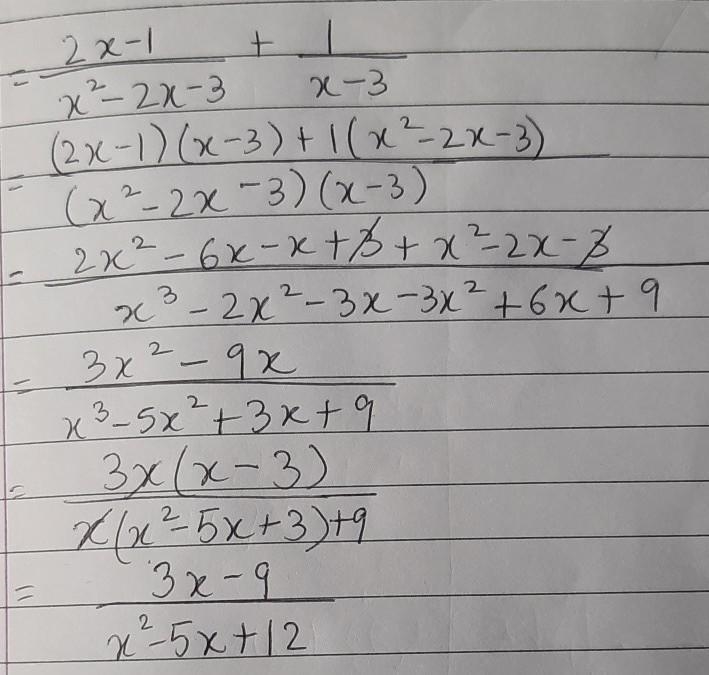 = (2x-1)/(x²-2x-3) + 1/(x-3)
= ((2x-1)(x-3)+1(x²-2x-3))/((x²-2x-3)(x-3))
= (2x²-6x-x+3+x²-2x-3)/(x³-2x²-3x-3x²+6x+9)
= (3x²-9x)/(x³-5x²+3x+9)
= (3x(x-3))/(x(x²-5x+3)+9)
= (3x-9)/(x²-5x+12)